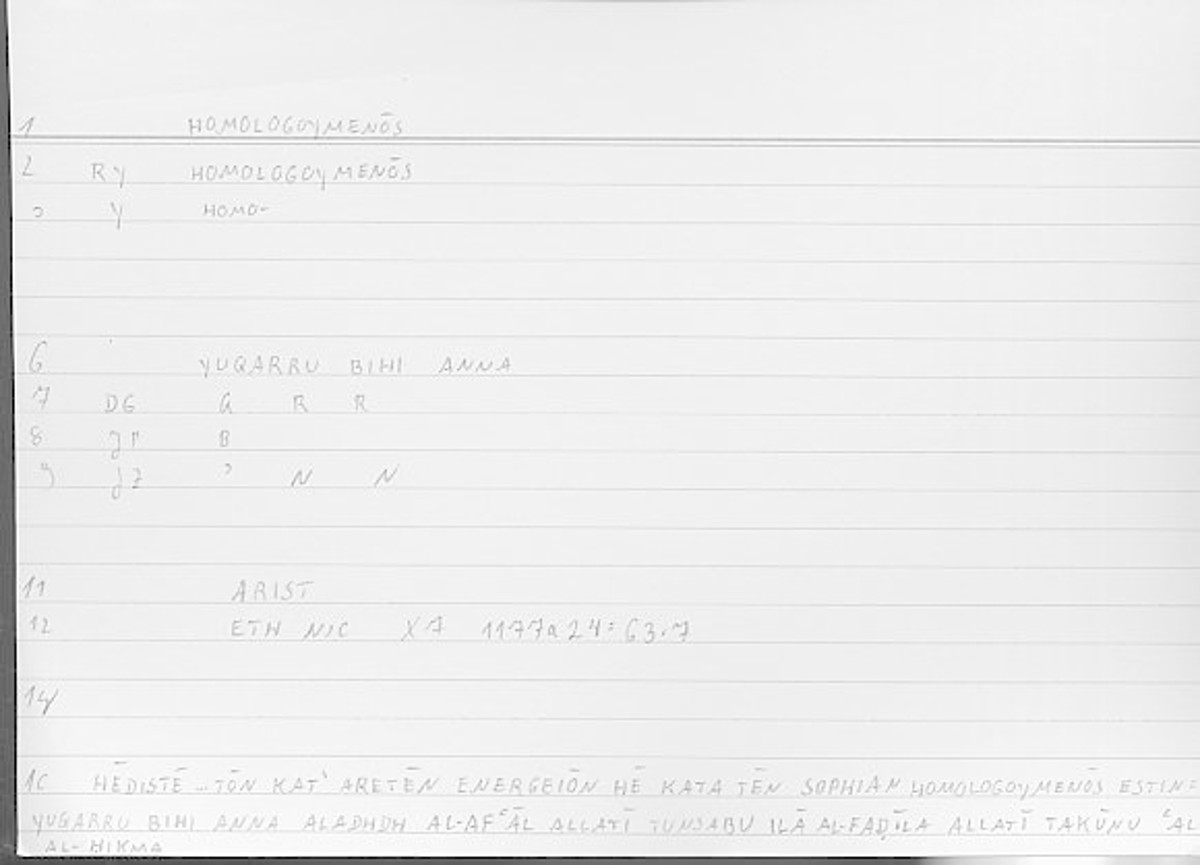 1 HOMOLOGOYMENŌS
2 RY HOMOLOGOYMENŌS
Y HOMO-
6 YUQARRU BIHI ANNA
7 DG Q R R
8 B
9 ʾ N N
11 ARIST
12 ETH NIC X 7 1177a24 = 63.7
14
HĒDISTĒ ... TŌN KAT' ARETĒN ENERGEIŌN HĒ KATA TĒN SOPHIAN HOMOLOGOYMENŌS ESTIN =
YUQARRU BIHI ANNA ALADHDH AL-AFʿĀL ALLATĪ TUNSABU ILĀ AL-FAḌĪLA ALLATĪ TAKŪNU ʿAL
AL-HIKMA